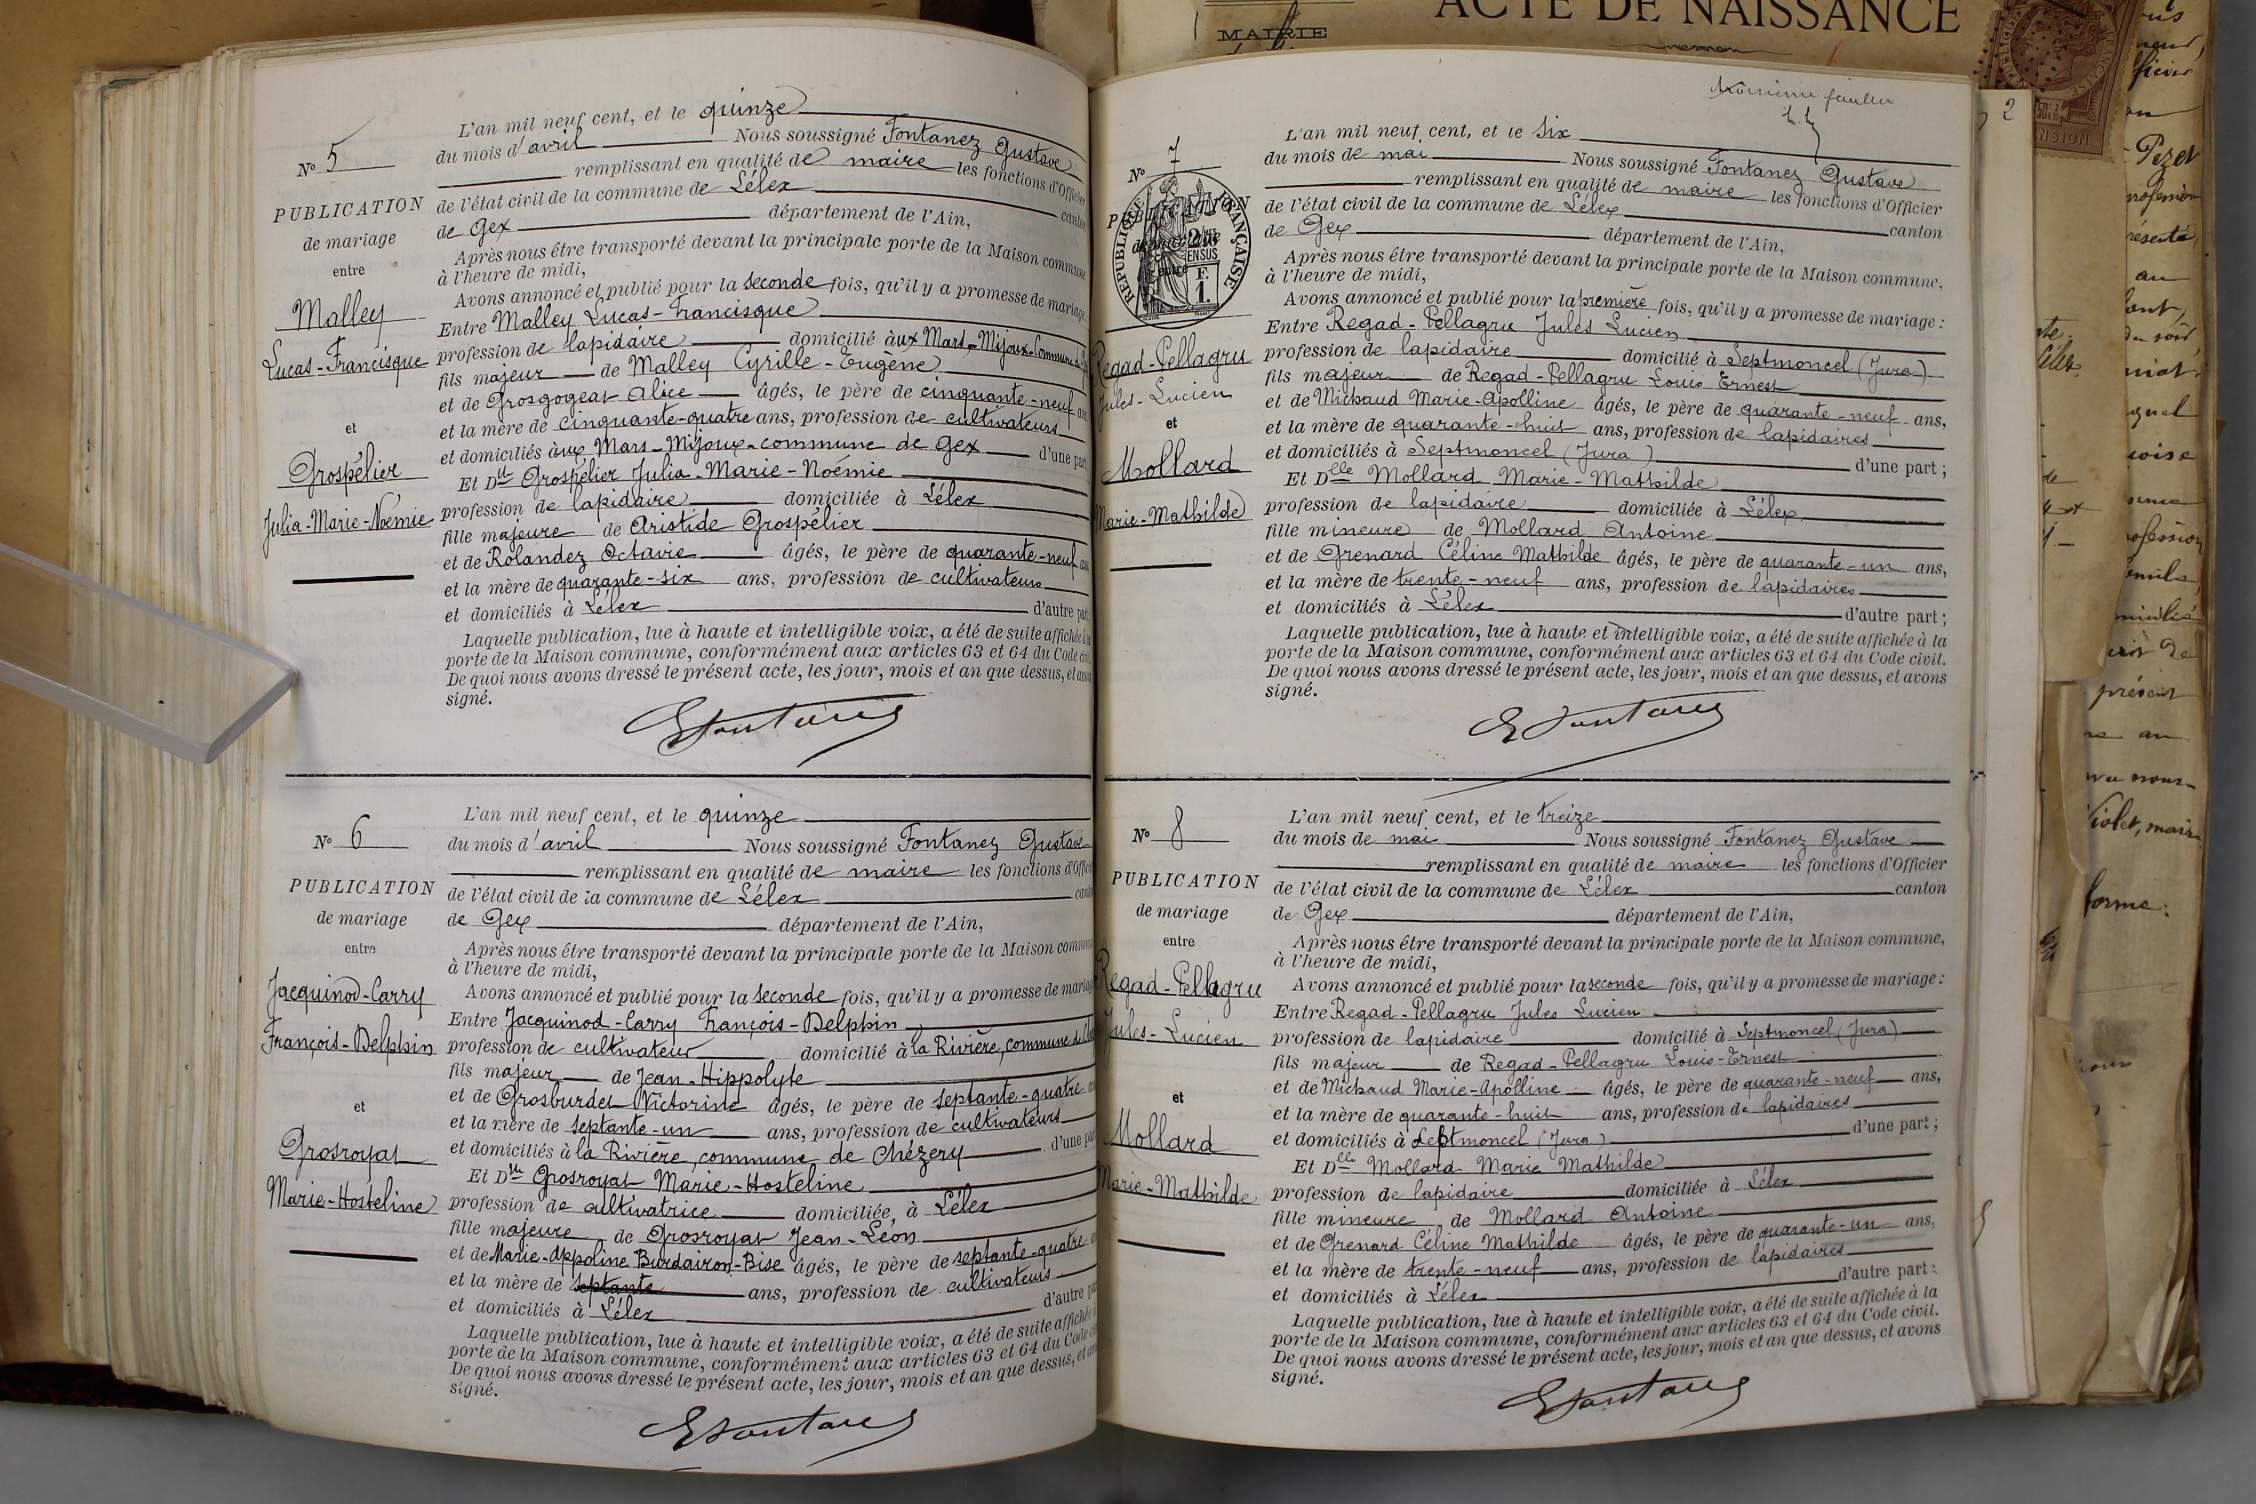 N° 5
PUBLICATION
de mariage
entre
Malley
Lucas-Francisque
et
Grospélier
Julia-Marie-Noémie
L'an mil neuf cent, et le quinze
du mois d'avril Nous soussigné Fontanez Gustave
remplissant en qualité de maire les fonctions d'Officier
de l'état civil de la commune de Lélex canton
de Gex département de l'Ain,
Après nous être transporté devant la principale porte de la Maison commune
à l'heure de midi,
Avons annoncé et publié pour la seconde fois, qu'il y a promesse de mariage
Entre Malley Lucas-Francisque
profession de lapidaire domicilié aux Mars-Mijoux-Commune de
fils majeur de Malley Cyrille-Eugène
et de Grosgogeat Alice âgés, le père de cinquante-neuf ans
et la mère de cinquante-quatre ans, profession de cultivateurs
et domiciliés aux Mars-Mijoux-commune de Gex d'une part
Et Dlle Grospélier Julia-Marie-Noémie
profession de lapidaire domiciliée à Lélex
fille majeure de Aristide Grospélier
et de Rolandez Octavie âgés, le père de quarante-neuf ans
et la mère de quarante-six ans, profession de cultivateurs
et domiciliés à Lélex d'autre part
Laquelle publication, lue à haute et intelligible voix, a été de suite affichée à la
porte de la Maison commune, conformément aux articles 63 et 64 du Code civil.
De quoi nous avons dressé le présent acte, les jour, mois et an que dessus, et avons
signé.
GFontanez
N° 6
PUBLICATION
de mariage
entre
Jacquinod-Carry
François-Delphin
et
Grosroyat
Marie-Hosteline
L'an mil neuf cent, et le quinze
du mois d'avril Nous soussigné Fontanez Gustave
remplissant en qualité de maire les fonctions d'Officier
de l'état civil de la commune de Lélex canton
de Gex département de l'Ain,
Après nous être transporté devant la principale porte de la Maison commune
à l'heure de midi,
Avons annoncé et publié pour la seconde fois, qu'il y a promesse de mariage
Entre Jacquinod-Carry François-Delphin
profession de cultivateur domicilié à la Rivière, commune de
fils majeur de Jean-Hippolyte
et de Grosburdet Victorine âgés, le père de septante-quatre
et la mère de septante-un ans, profession de cultivateurs
et domiciliés à la Rivière, commune de Chézery d'une part
Et Dlle Grosroyat Marie-Hosteline
profession de cultivatrice domiciliée, à Lélex
fille majeure de Grosroyat Jean-Léon
et de Marie-Appoline Burdairon-Bise âgés, le père de septante-quatre
et la mère de septante ans, profession de cultivateurs
et domiciliés à Lélex d'autre part
Laquelle publication, lue à haute et intelligible voix, a été de suite affichée à
porte de la Maison commune, conformément aux articles 63 et 64 du Code
De quoi nous avons dressé le présent acte, les jour, mois et an que dessus, et
signé.
GFontanez
MAIRIE
ACTE DE NAISSANCE
2
N° 7
PUBLICATION
de mariage
entre
RÉPUBLIQUE FRANÇAISE
Regad-Pellagru
Jules-Lucien
et
Mollard
Marie-Mathilde
L'an mil neuf cent, et le six
du mois de mai Nous soussigné Fontanez Gustave
remplissant en qualité de maire les fonctions d'Officier
de l'état civil de la commune de Lélex canton
de Gex département de l'Ain,
Après nous être transporté devant la principale porte de la Maison commune,
à l'heure de midi,
Avons annoncé et publié pour la première fois, qu'il y a promesse de mariage :
Entre Regad-Pellagru Jules Lucien
profession de lapidaire domicilié à Septmoncel (Jura)
fils majeur de Regad-Pellagru Louis Ernest
et de Michaud Marie-Apolline âgés, le père de quarante-neuf ans,
et la mère de quarante-huit ans, profession de lapidaires
et domiciliés à Septmoncel (Jura) d'une part ;
Et Dlle Mollard Marie-Mathilde
profession de lapidaire domiciliée à Lélex
fille mineure de Mollard Antoine
et de Grenard Céline Mathilde âgés, le père de quarante-un ans,
et la mère de trente-neuf ans, profession de lapidaires
et domiciliés à Lélex d'autre part ;
Laquelle publication, lue à haute et intelligible voix, a été de suite affichée à la
porte de la Maison commune, conformément aux articles 63 et 64 du Code civil.
De quoi nous avons dressé le présent acte, les jour, mois et an que dessus, et avons
signé.
GFontanez
N° 8
PUBLICATION
de mariage
entre
Regad-Pellagru
Jules-Lucien
et
Mollard
Marie-Mathilde
L'an mil neuf cent, et le treize
du mois de mai Nous soussigné Fontanez Gustave
remplissant en qualité de maire les fonctions d'Officier
de l'état civil de la commune de Lélex canton
de Gex département de l'Ain,
Après nous être transporté devant la principale porte de la Maison commune,
à l'heure de midi,
Avons annoncé et publié pour la seconde fois, qu'il y a promesse de mariage :
Entre Regad-Pellagru Jules Lucien
profession de lapidaire domicilié à Septmoncel (Jura)
fils majeur de Regad-Pellagru Louis-Ernest
et de Michaud Marie-Apolline âgés, le père de quarante-neuf ans,
et la mère de quarante-huit ans, profession de lapidaires
et domiciliés à Septmoncel (Jura) d'une part ;
Et Dlle Mollard Marie Mathilde
profession de lapidaire domiciliée à Lélex
fille mineure de Mollard Antoine
et de Grenard Céline Mathilde âgés, le père de quarante-un ans,
et la mère de trente-neuf ans, profession de lapidaires
et domiciliés à Lélex d'autre part ;
Laquelle publication, lue à haute et intelligible voix, a été de suite affichée à la
porte de la Maison commune, conformément aux articles 63 et 64 du Code civil.
De quoi nous avons dressé le présent acte, les jour, mois et an que dessus, et avons
signé.
GFontanez